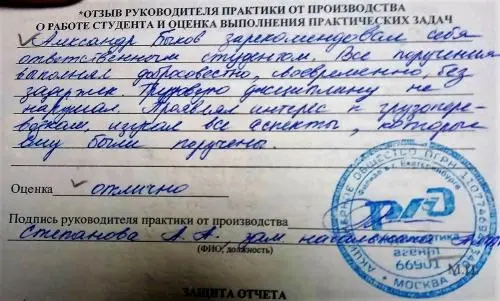 *ОТЗЫВ РУКОВОДИТЕЛЯ ПРАКТИКИ ОТ ПРОИЗВОДСТВА
О РАБОТЕ СТУДЕНТА И ОЦЕНКА ВЫПОЛНЕНИЯ ПРАКТИЧЕСКИХ ЗАДАЧ
Александр Быков зарекомендовал себя
ответственным студентом. Все поручения
выполнял добросовестно, своевременно, без
задержек. Трудовую дисциплину не
нарушал. Проявлял интерес к грузопере-
возкам, изучал все аспекты, которые
ему были поручены.
Оценка отлично
Подпись руководителя практики от производства
Степанова А. А., зам. начальника
(ФИО, должность)
М.П.
АКЦИОНЕРНОЕ ОБЩЕСТВО ОГРН
г. Екатеринбург
РЖД
агент
66901
* МОСКВА *
ЗАЩИТА ОТЧЕТА